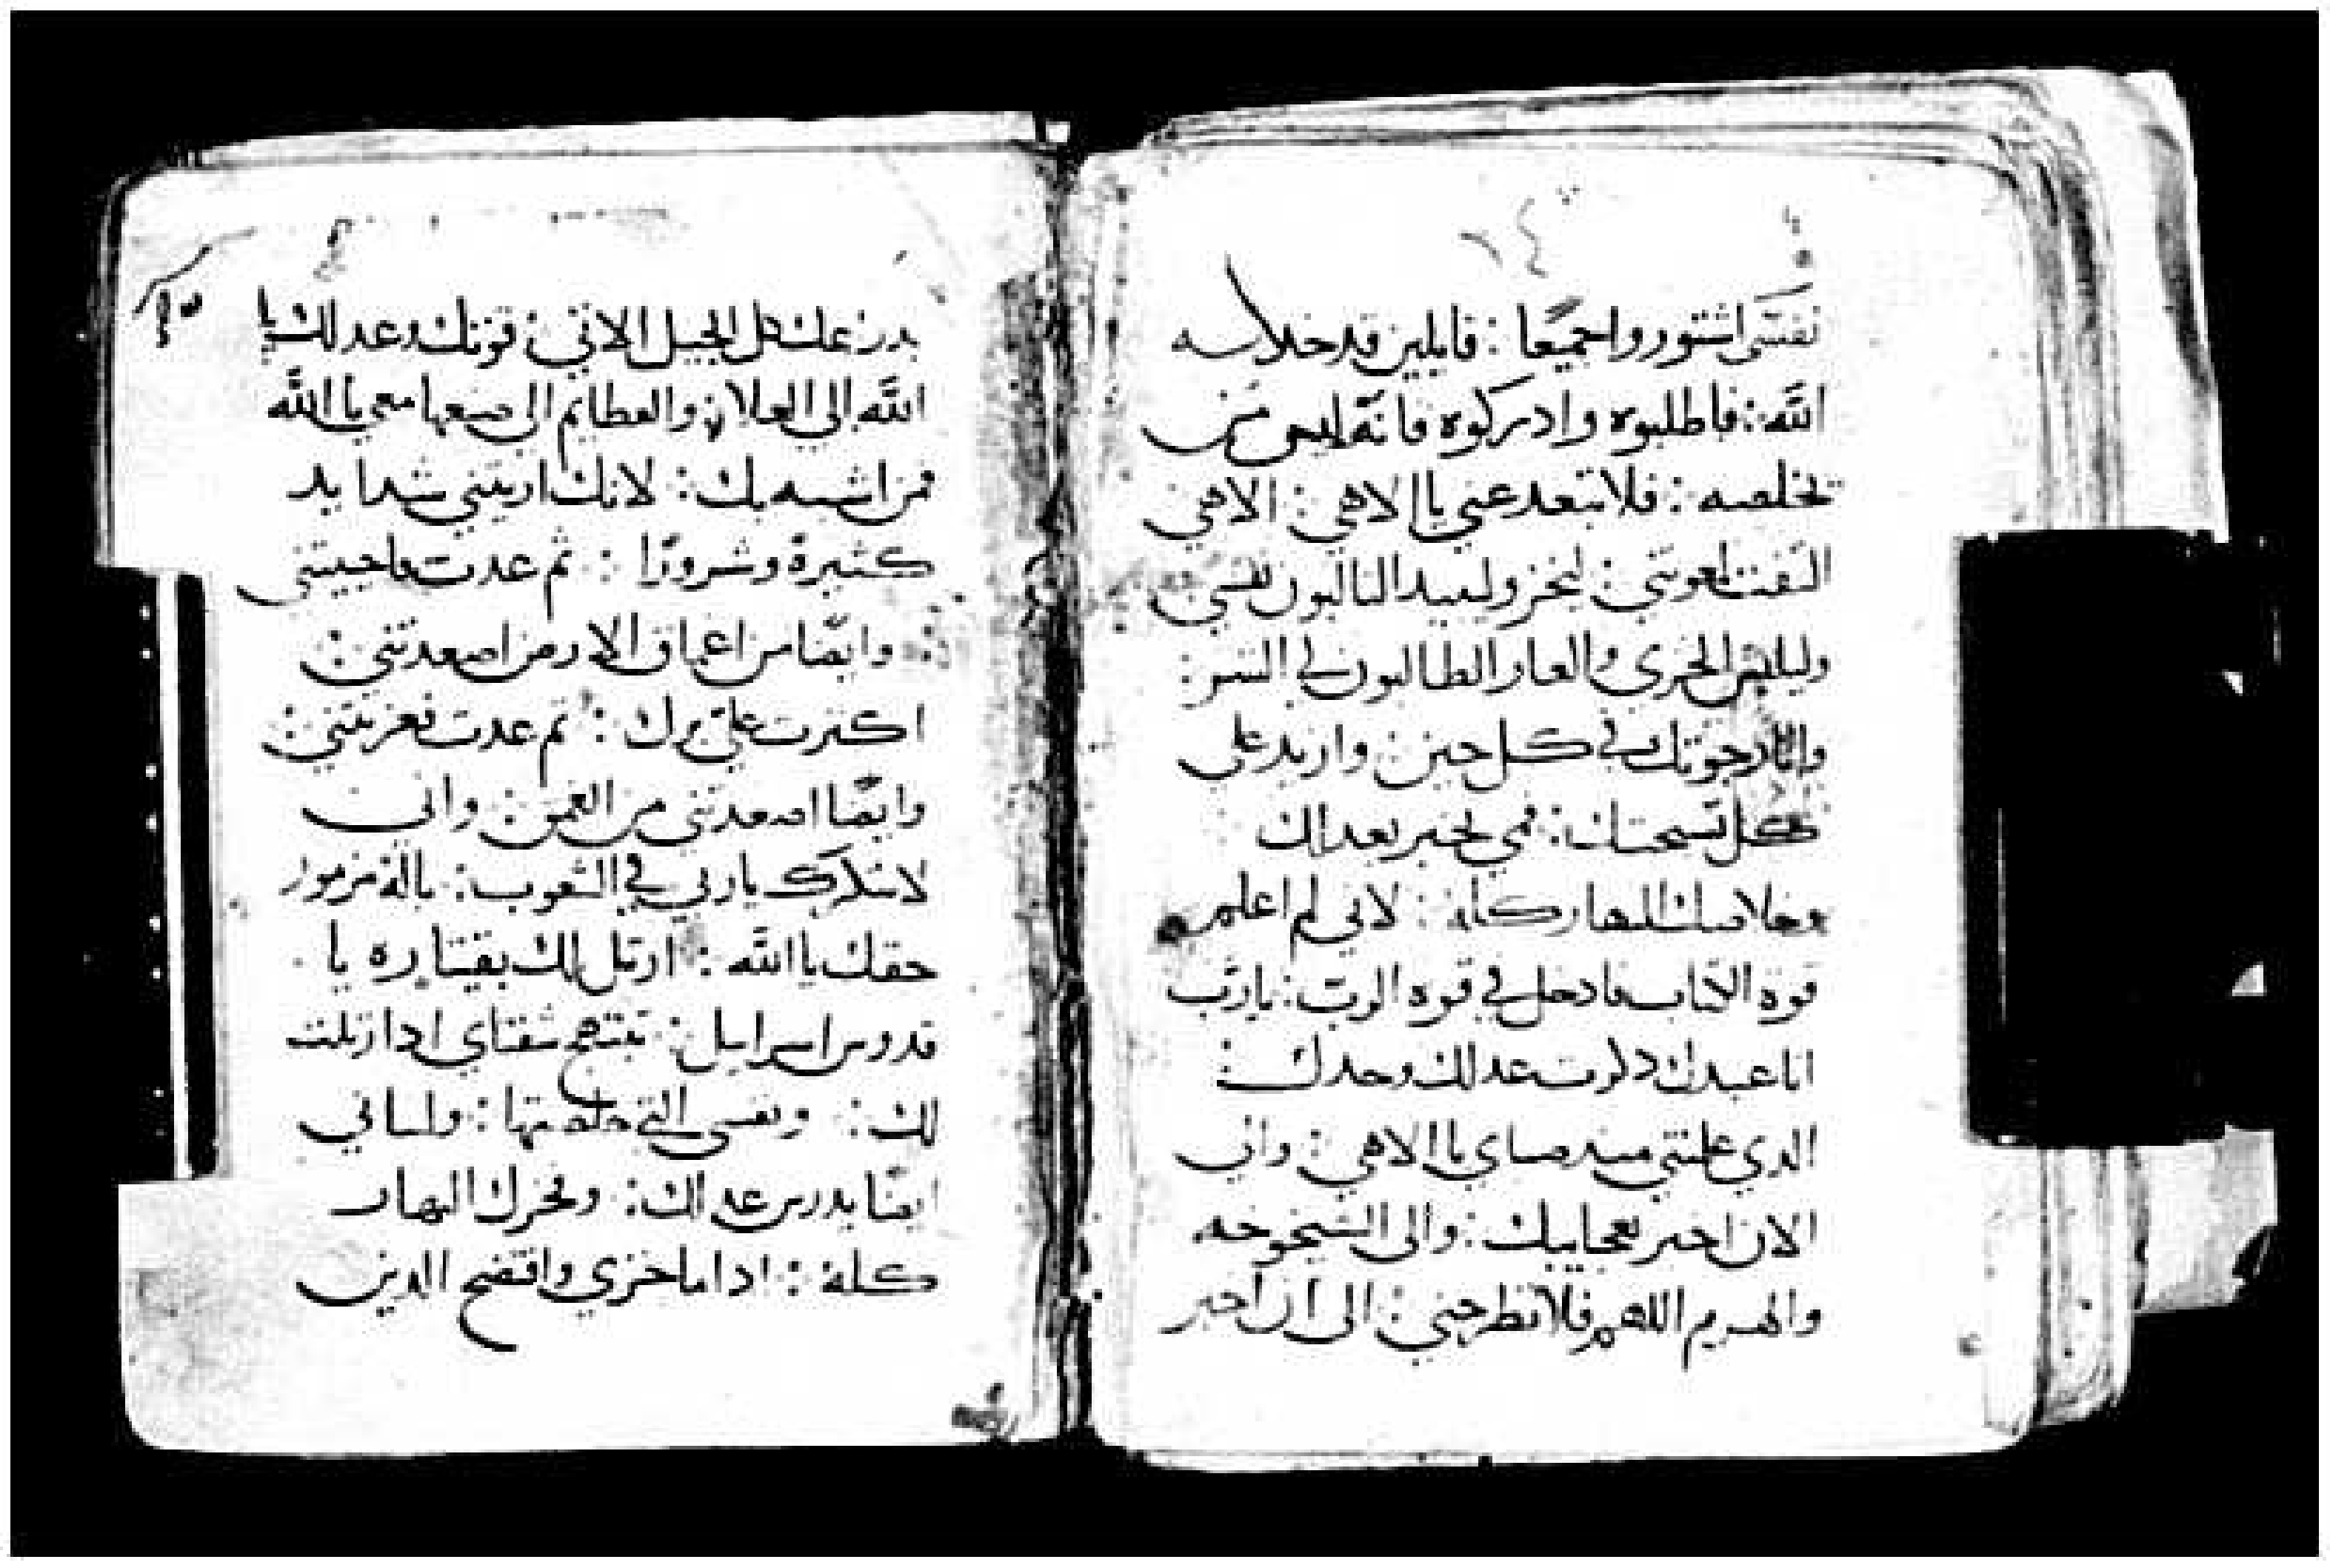 نفسي اشتوروا جميعًا : قايلين قد خلاسه
الله : فاطلبوه وادركوه فانه ليس من
يخلصه : فلا تبعد عني يا الاهي : الاهي
التفت لمعونتي : ليخز وليبيد الثالبون نفسي :
وليلبس الخزي والعار الطالبون لي الشر :
وانا رجوتك في كل حين : وازيد على
كل تسبحتك : فمي يخبر بعدلك
وخلاصك النهار كله : لاني لم اعلم
قوه الكتاب فادخل في قوه الرب : يا رب
انا عبدك ذكرت عدلك وحدك :
الدي علمتني منذ صباي يا الاهي : واني
الان اخبر بعجايبك : والى الشيخوخه
والهرم اللهم فلا تطرحني : الى ان اخبر
بدرعك كل الجيل الاتي : قوتك وعدلك يا
الله الى العلا : والعظايم التي صنعها معي يا الله
فمن اشبه بك : لانك اريتني شدايد
كثيرة وشرورًا : ثم عدت فاحييتني
وايضًا من اعماق الارض اصعدتني :
اكثرت علي برك : ثم عدت فعزيتني :
وايضًا اصعدتني من الغمق : واني
لاشكرك يا ربي في الشعوب : بالة مزمور
حقك يا الله : ارتل لك بقيتاره يا
قدوس اسرايل : تبتهج شفتاي ادا رتلت
لك : ونفسي التي خلصتها : ولساني
ايضًا يدرس عدلك : وفخرك النهار
كله : ادا ما خزي وافتضح الدين